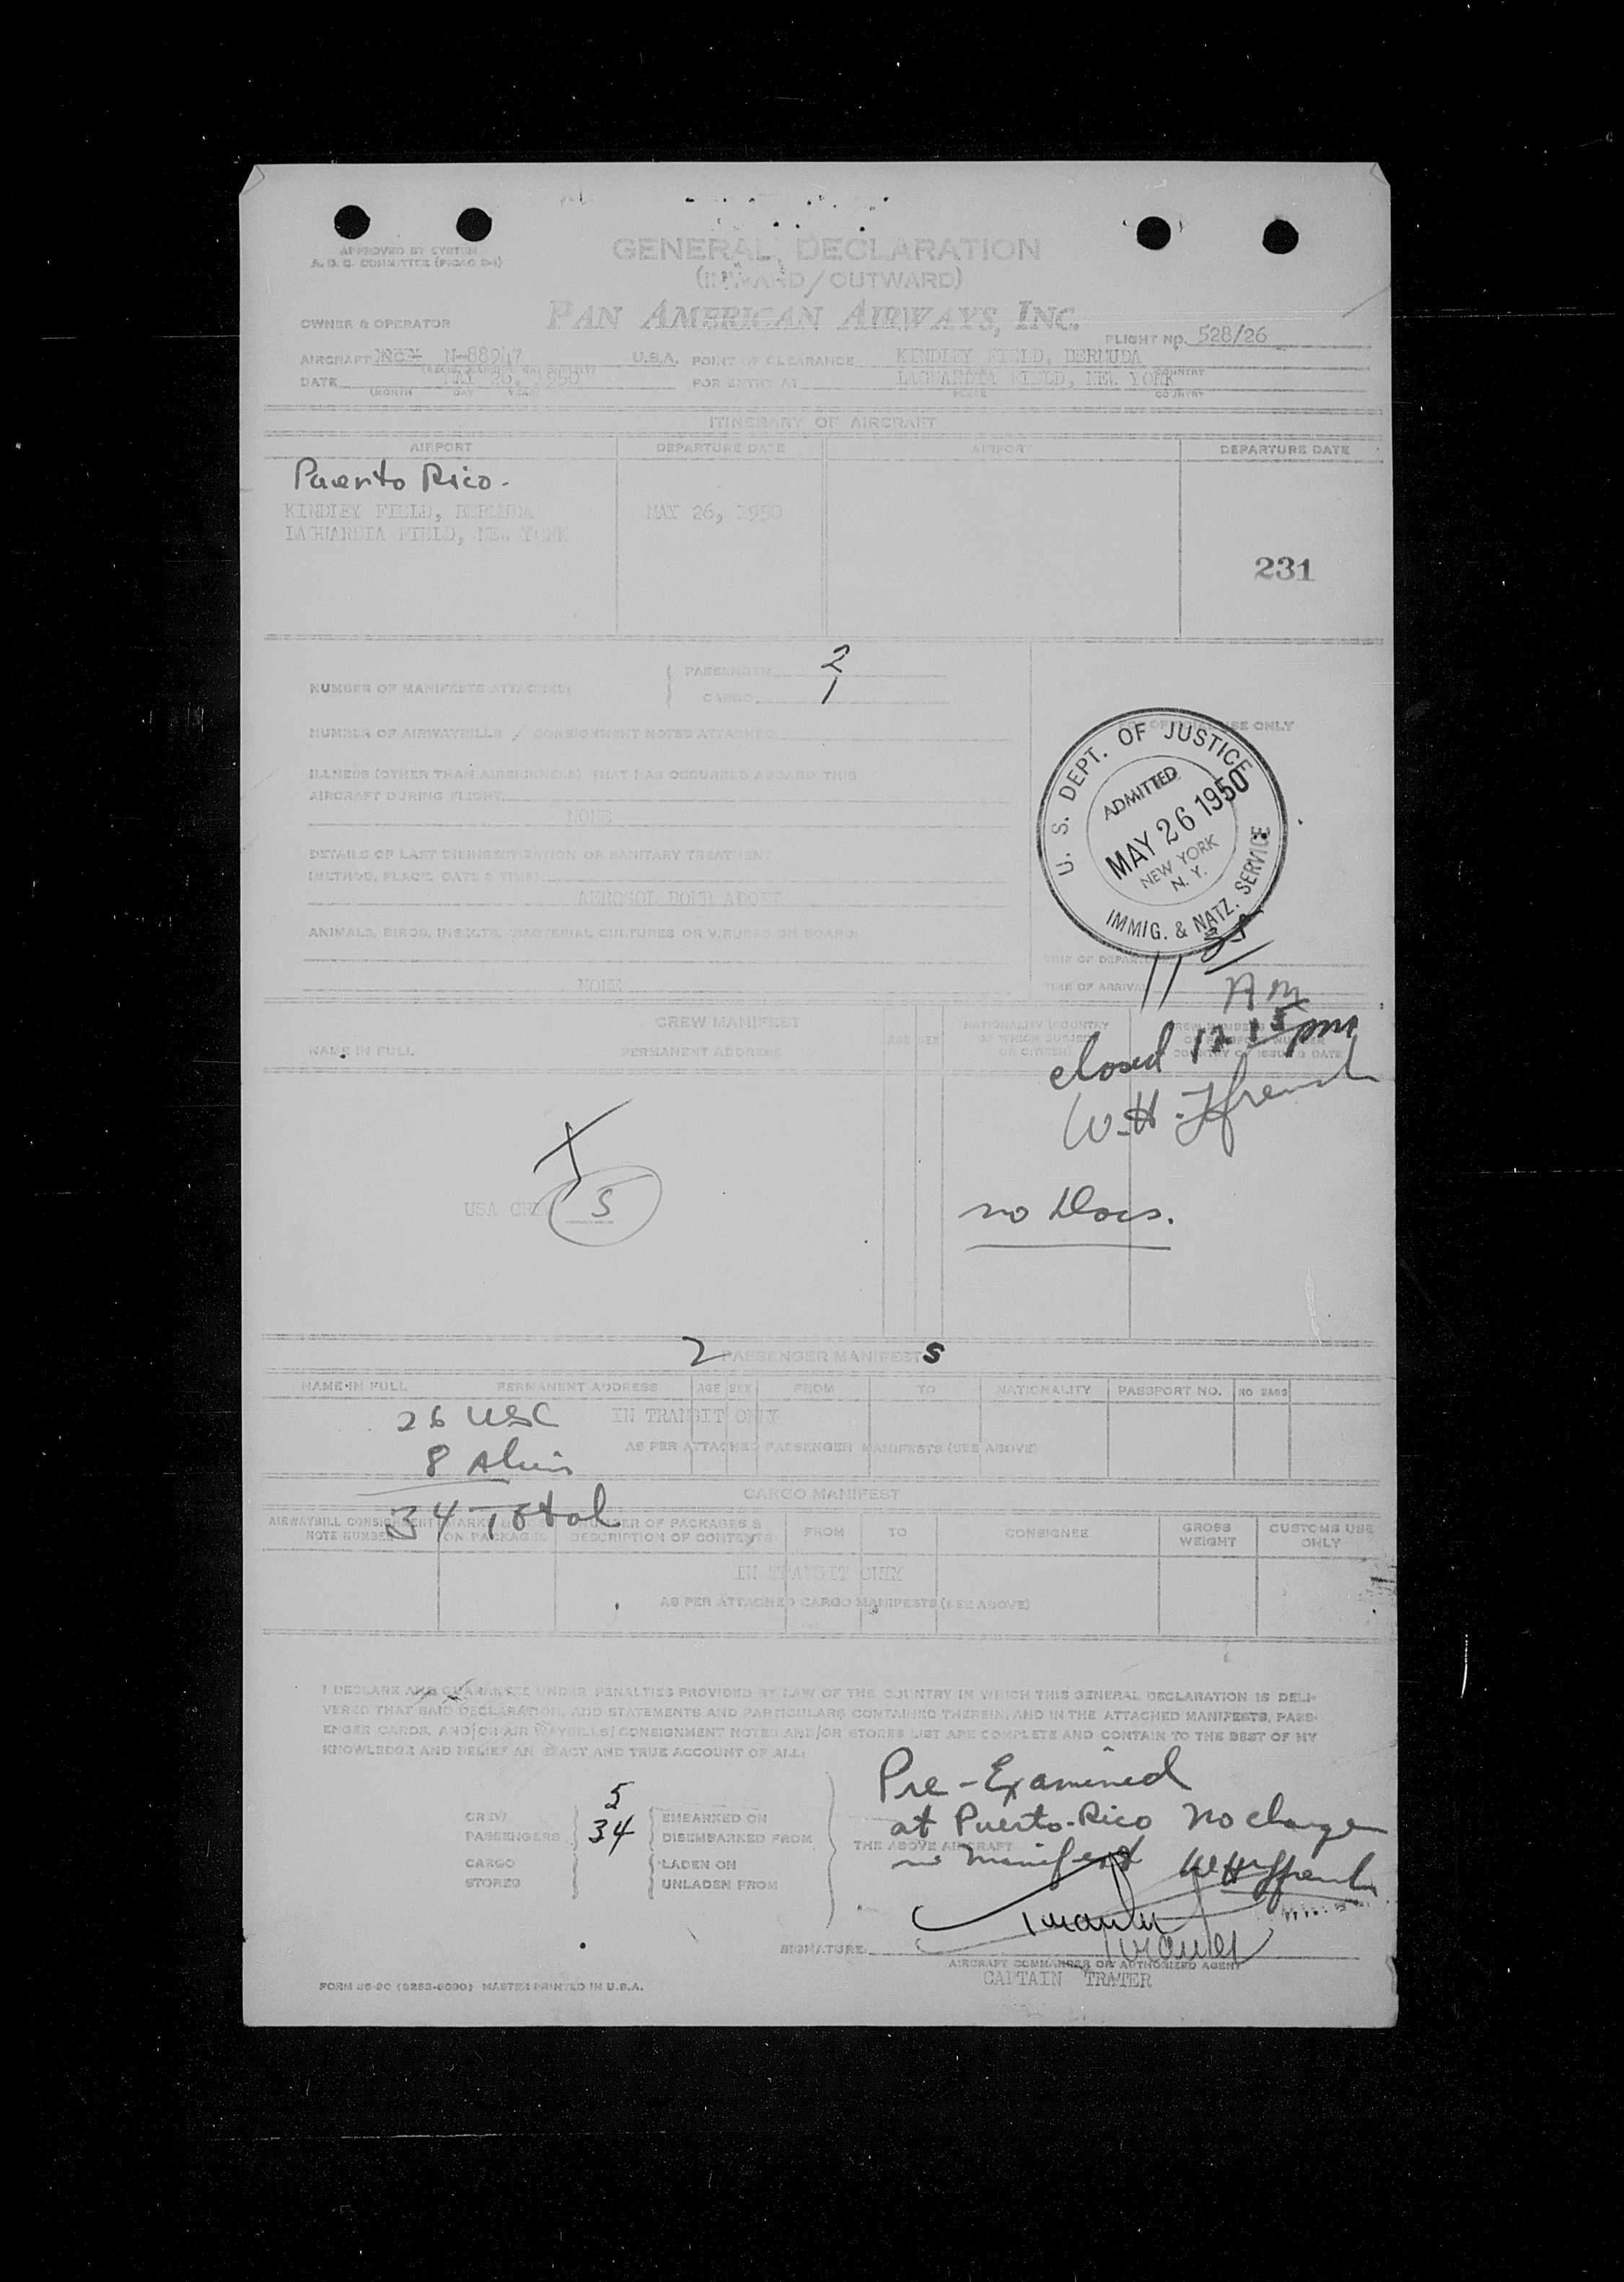 APPROVED BY SYSTEM
GENERAL DECLARATION
(INWARD/OUTWARD)
PAN AMERICAN AIRWAYS, INC.
OWNER & OPERATOR
FLIGHT NO. 528/26
AIRCRAFT N-88947 U.S.A. POINT OF CLEARANCE KINDLEY FIELD, BERMUDA
COUNTRY
DATE MAY 26, 1950 FOR ENTRY AT LAGUARDIA FIELD, NEW YORK
MONTH DAY YEAR PLACE COUNTRY
ITINERARY OF AIRCRAFT
AIRPORT DEPARTURE DATE AIRPORT DEPARTURE DATE
Puerto Rico.
KINDLEY FIELD, BERMUDA MAY 26, 1950
LAGUARDIA FIELD, NEW YORK
231
NUMBER OF MANIFESTS ATTACHED:
PASSENGER 2
CARGO 1
NUMBER OF AIRWAYBILLS / CONSIGNMENT NOTES ATTACHED
USE ONLY
ILLNESS (OTHER THAN AIRSICKNESS) THAT HAS OCCURRED ABOARD THIS
AIRCRAFT DURING FLIGHT
NONE
U. S. DEPT. OF JUSTICE
ADMITTED
MAY 26 1950
NEW YORK
N. Y.
IMMIG. & NATZ. SERVICE
DETAILS OF LAST DISINSECTIZATION OR SANITARY TREATMENT
(METHOD, PLACE, DATE & TIME)
AEROSOL BOMB
ANIMALS, BIRDS, INSECTS, BACTERIAL CULTURES OR VIRUSES ON BOARD:
NONE
TIME OF DEPARTURE
TIME OF ARRIVAL 11
AM
CREW MANIFEST
NAME IN FULL PERMANENT ADDRESS AGE SEX NATIONALITY (COUNTRY
OF WHICH SUBJECT
OR CITIZEN)
closed 12 15 pm
W.H. Ffrench
USA CREW 5
no Docs.
2 PASSENGER MANIFESTS
NAME IN FULL PERMANENT ADDRESS AGE SEX FROM TO NATIONALITY PASSPORT NO. NO BAGS
26 USC IN TRANSIT ONLY
8 Aliens AS PER ATTACHED PASSENGER MANIFESTS (SEE ABOVE)
34 Total
CARGO MANIFEST
AIRWAYBILL CONSIGNMENT NOTE NUMBER MARKS ON PACKAGES NUMBER OF PACKAGES & DESCRIPTION OF CONTENTS FROM TO CONSIGNEE GROSS WEIGHT CUSTOMS USE ONLY
IN TRANSIT ONLY
AS PER ATTACHED CARGO MANIFESTS (SEE ABOVE)
I DECLARE AND GUARANTEE UNDER PENALTIES PROVIDED BY LAW OF THE COUNTRY IN WHICH THIS GENERAL DECLARATION IS DELI-
VERED THAT SAID DECLARATION, AND STATEMENTS AND PARTICULARS CONTAINED THEREIN, AND IN THE ATTACHED MANIFESTS, PASS-
ENGER CARDS, AND/OR AIR WAYBILLS/CONSIGNMENT NOTES AND/OR STORES LIST ARE COMPLETE AND CONTAIN TO THE BEST OF MY
KNOWLEDGE AND BELIEF AN EXACT AND TRUE ACCOUNT OF ALL:
Pre-Examined
at Puerto-Rico No change
in manifest W H Ffrench
CREW 5 EMBARKED ON
PASSENGERS 34 DISEMBARKED FROM
THE ABOVE AIRCRAFT
CARGO LADEN ON
STORES UNLADEN FROM
SIGNATURE:
AIRCRAFT COMMANDER OR AUTHORIZED AGENT
CAPTAIN TRATER
MASTER PRINTED IN U.S.A.